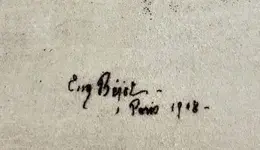 Eug Béjot -
, Paris 1918 -